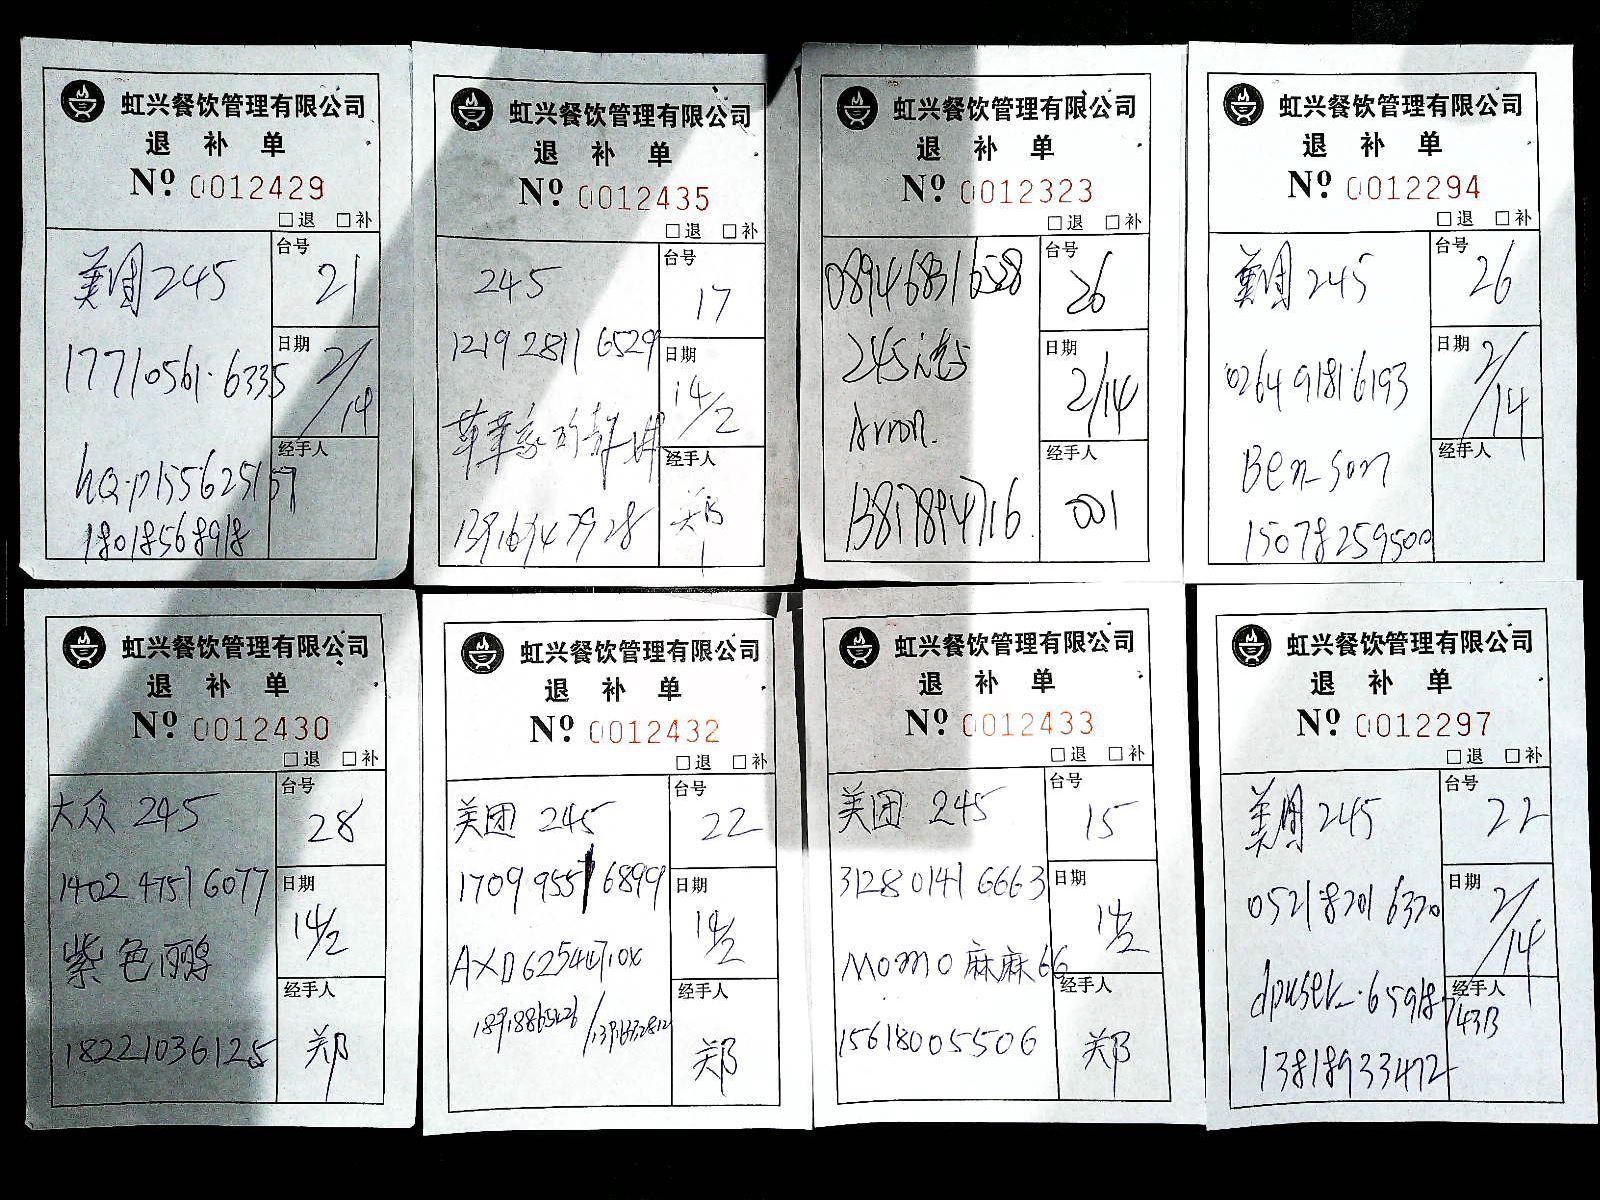 虹兴餐饮管理有限公司
退 补 单
Nº 0012429
□退 □补
美团 245
台号
21
17710561·6335
日期
2/14
经手人
18018568918
虹兴餐饮管理有限公司
退 补 单
Nº 0012435
□退 □补
245
台号
17
1219 2811 6529
日期
14/2
经手人
郑
13916947928
虹兴餐饮管理有限公司
退 补 单
Nº 0012323
□退 □补
0894 6831 6528
台号
26
245
日期
2/14
Arron.
经手人
001
1387894716
虹兴餐饮管理有限公司
退 补 单
Nº 0012294
□退 □补
美团 245
台号
26
0264 9181 6193
日期
2/14
Ben_Son
经手人
15078259500
虹兴餐饮管理有限公司
退 补 单
Nº 0012430
□退 □补
大众 245
台号
28
1402 4751 6077
日期
14/2
紫色
经手人
18221036125
郑
虹兴餐饮管理有限公司
退 补 单
Nº 0012432
□退 □补
美团 245
台号
22
1709 9551 6899
日期
14/2
经手人
郑
虹兴餐饮管理有限公司
退 补 单
Nº 0012433
□退 □补
美团 245
台号
15
3128 0141 6663
日期
14/2
MOMO麻麻66
经手人
15618005506
郑
虹兴餐饮管理有限公司
退 补 单
Nº 0012297
□退 □补
美团 245
台号
22
0521 8201 6320
日期
2/14
dpuser_·65918743B
经手人
13818933472